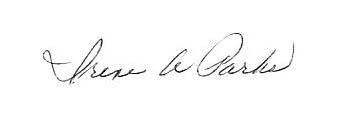 Irene W Parks